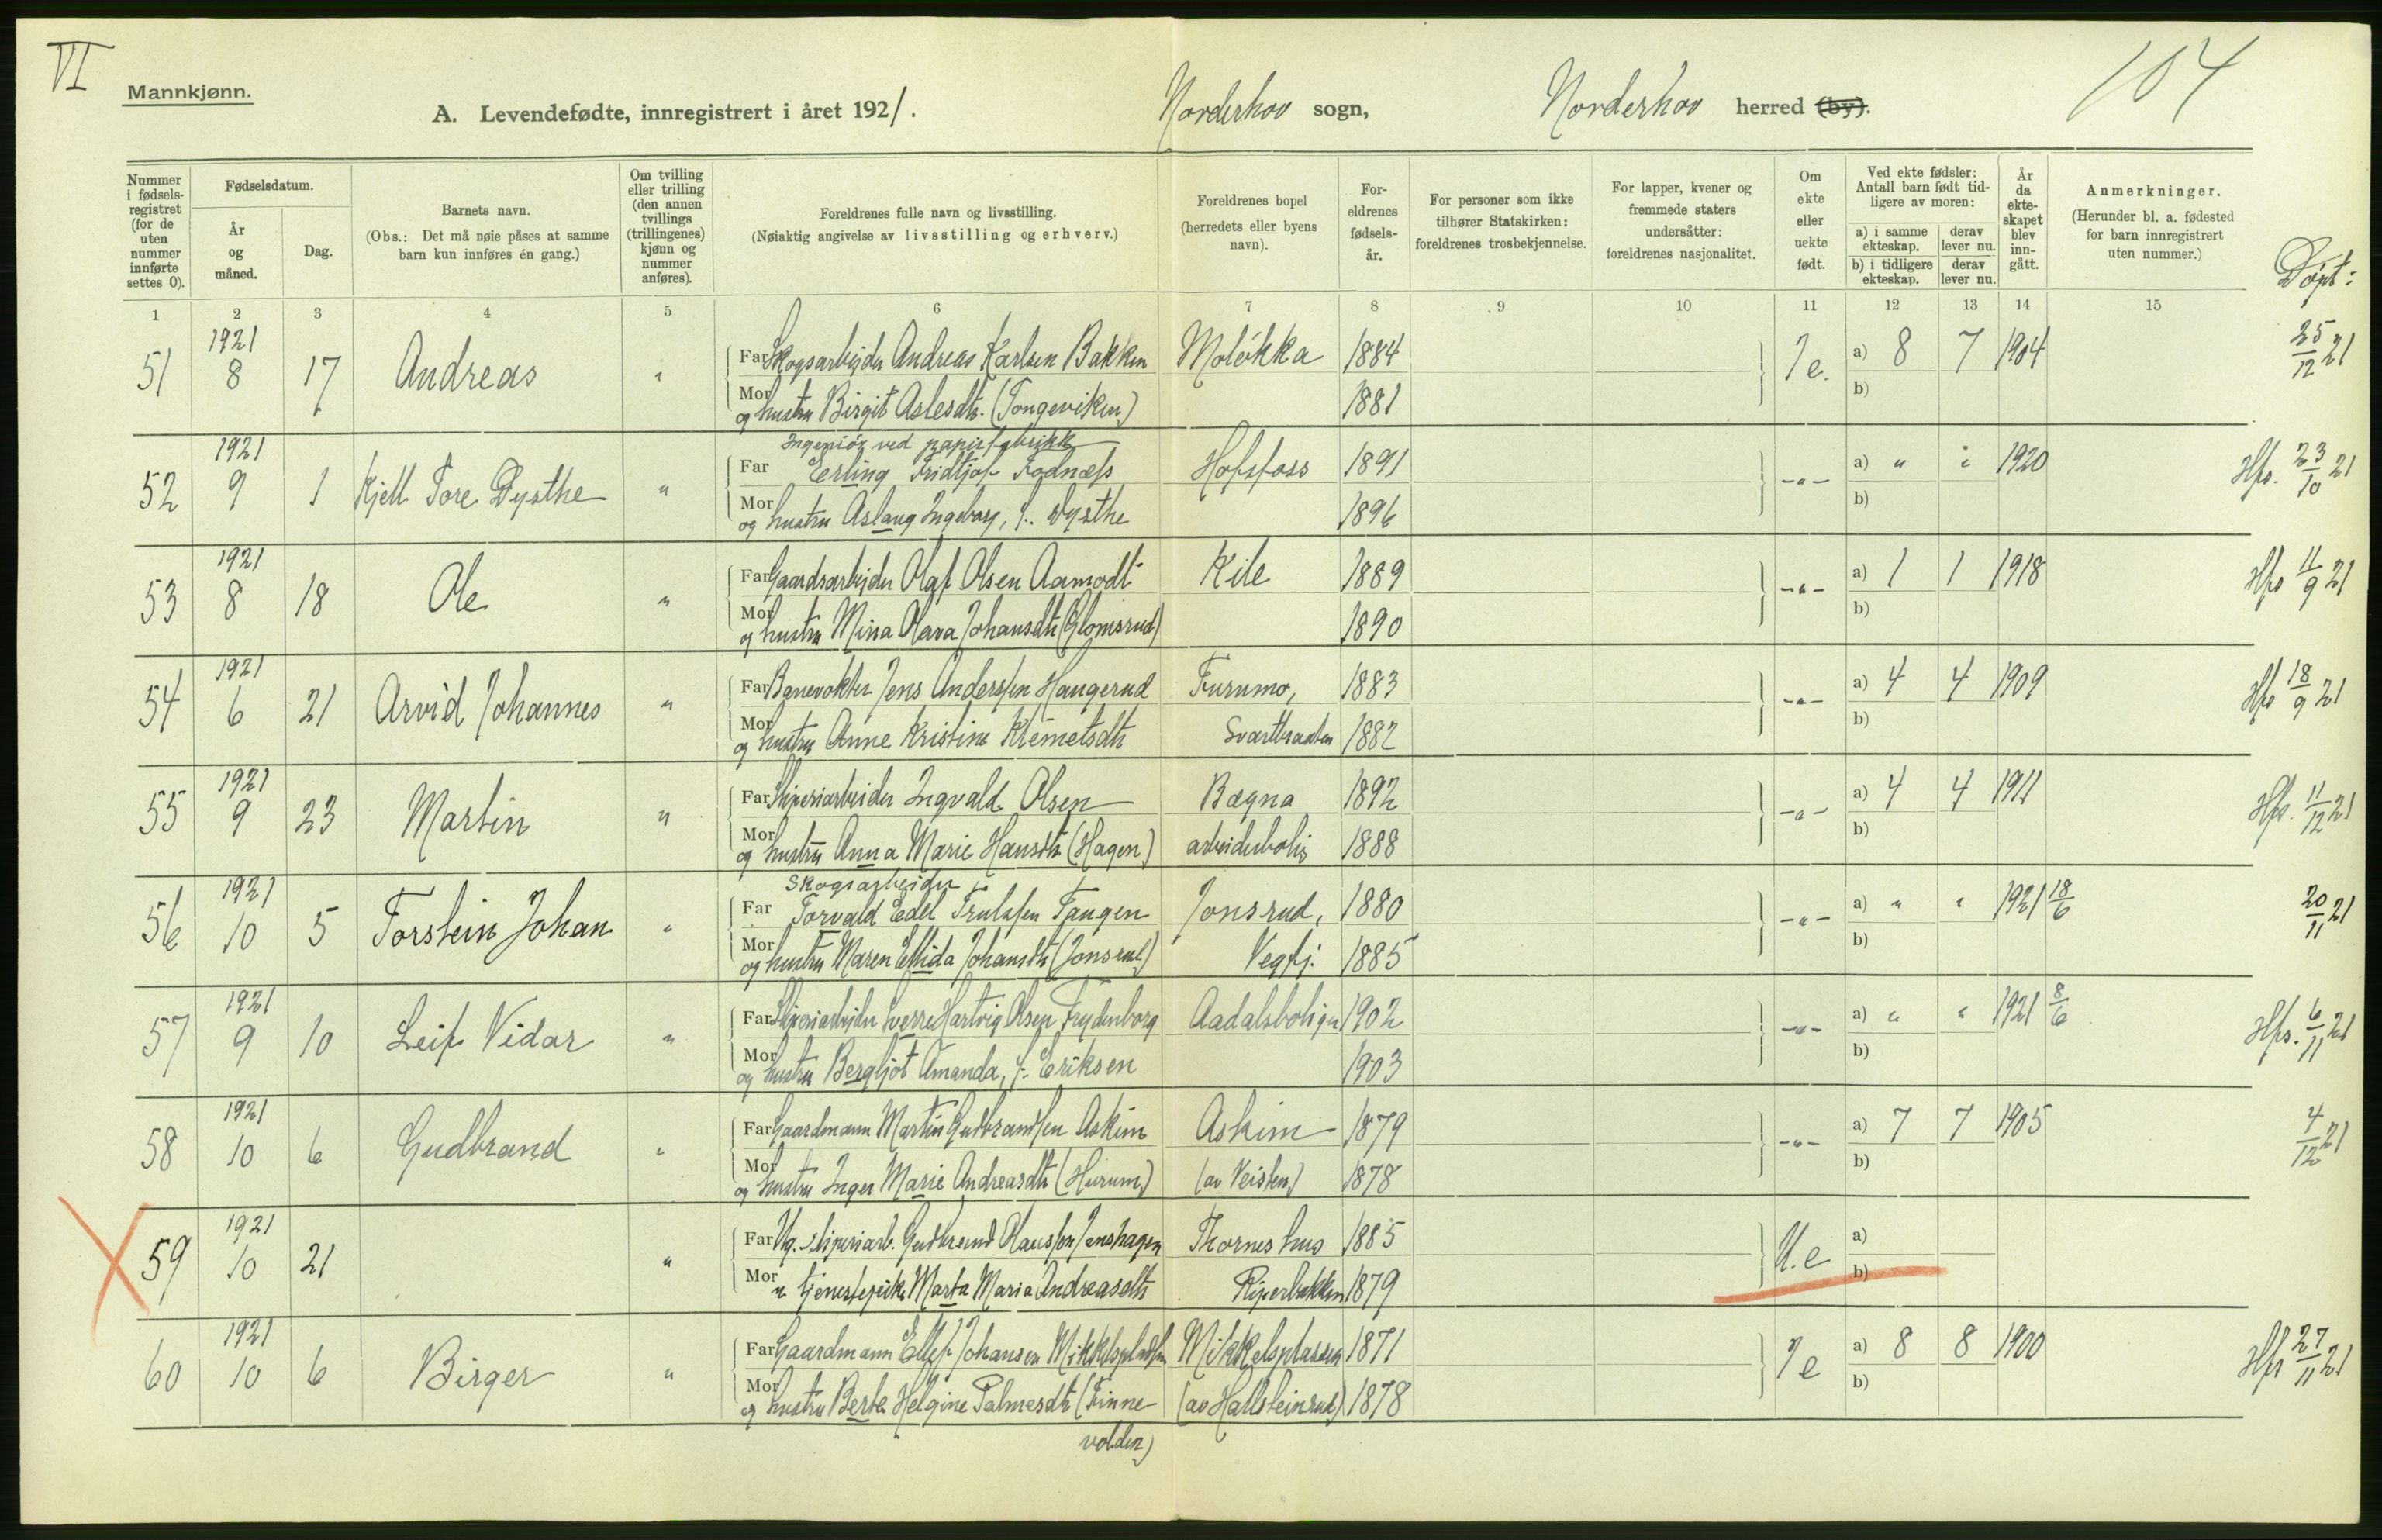 VI
104
Mannkjønn.
A. Levendefødte, innregistrert i året 1921. Norderhov sogn, Norderhov herred (by).
Nummer i fødselsregistret (for de uten nummer innførte settes 0).
Fødselsdatum.
År og måned.
Dag.
Barnets navn.
(Obs.: Det må nøie påses at samme barn kun innføres én gang.)
Om tvilling eller trilling (den annen tvillings (trillingenes) kjønn og nummer anføres).
Foreldrenes fulle navn og livsstilling.
(Nøiaktig angivelse av livsstilling og erhverv.)
Foreldrenes bopel (herredets eller byens navn).
Foreldrenes fødselsår.
For personer som ikke tilhører Statskirken: foreldrenes trosbekjennelse.
For lapper, kvener og fremmede staters undersåtter: foreldrenes nasjonalitet.
Om ekte eller uekte født.
Ved ekte fødsler: Antall barn født tidligere av moren:
a) i samme ekteskap. derav lever nu.
b) i tidligere ekteskap. derav lever nu.
År da ekteskapet blev inngått.
Anmerkninger.
(Herunder bl. a. fødested for barn innregistrert uten nummer.)
Døpt:
1 2 3 4 5 6 7 8 9 10 11 12 13 14 15
51 1921 8 17 Andreas " Far Skogsarbeider Andreas Karlsen Bakken Moløkka 1884 Ie. a) 8 7 1904 25/12 21
Mor og hustru Birgit Aslesdtr. (Tongeviken) 1881 b)
Ingeniør ved papirfabrikk
52 1921 9 1 Kjell Tore Dysthe " Far Erling Fridtjof Fodnæss Hofsfoss 1891 -"- a) " " 1920 Hfs. 23/10 21
Mor og hustru Aslaug Ingeborg, f. Dysthe 1896 b)
53 1921 8 18 Ole " Far Gaardsarbeider Olaf Olsen Aamodt Kile 1889 -"- a) 1 1 1918 Hfs 11/9 21
Mor og hustru Mina Olava Johansdtr (Glomsrud) 1890 b)
54 1921 6 21 Arvid Johannes " Far Banevokter Jens Anderssen Haugerud Furumo, 1883 -"- a) 4 4 1909 Hfs 18/9 21
Mor og hustru Anne Kristine Klemetsdtr Svartbraaten 1882 b)
55 1921 9 23 Martin " Far Sliperiarbeider Ingvald Olsen Bægna 1892 -"- a) 4 4 1911 Hfs. 11/12 21
Mor og hustru Anna Marie Hansdtr (Hagen) arbeiderbolig 1888 b)
Skogsarbeider
56 1921 10 5 Torstein Johan " Far Torvald Edel Trulssen Tangen Jonsrud, 1880 -"- a) " " 1921 18/6 20/11 21
Mor og hustru Maren Ellida Johansdtr (Jonsrud) Vegfj. 1885 b)
57 1921 9 10 Leif Vidar " Far Sliperiarbeider Sverre Hartvig Olsen Frydenborg Aadalsboligen 1902 -"- a) " " 1921 8/6 Hfs. 6/11 21
Mor og hustru Bergljot Amanda, f. Eriksen 1903 b)
58 1921 10 6 Gudbrand " Far Gaardmann Martin Gudbrandsen Askim Askim 1879 -"- a) 7 7 1905 4/12 21
Mor og hustru Inger Marie Andreasdtr (Hurum) (av Veisten) 1878 b)
59 1921 10 21 " Far Ug. sliperiarb. Gudbrand Olaussen Jenshagen Thorneshus 1885 U.e a)
Mor " tjenestepike Marta Maria Andreasdtr Piperbakken 1879 b)
60 1921 10 6 Birger " Far Gaardmann Ellef Johansen Mikkelsplassen Mikkelsplassen 1871 Ie a) 8 8 1900 Hfs 27/11 21
Mor og hustru Berte Helgine Palmesdtr (Finne- (av Hallsteinrud) 1878 b)
volden)